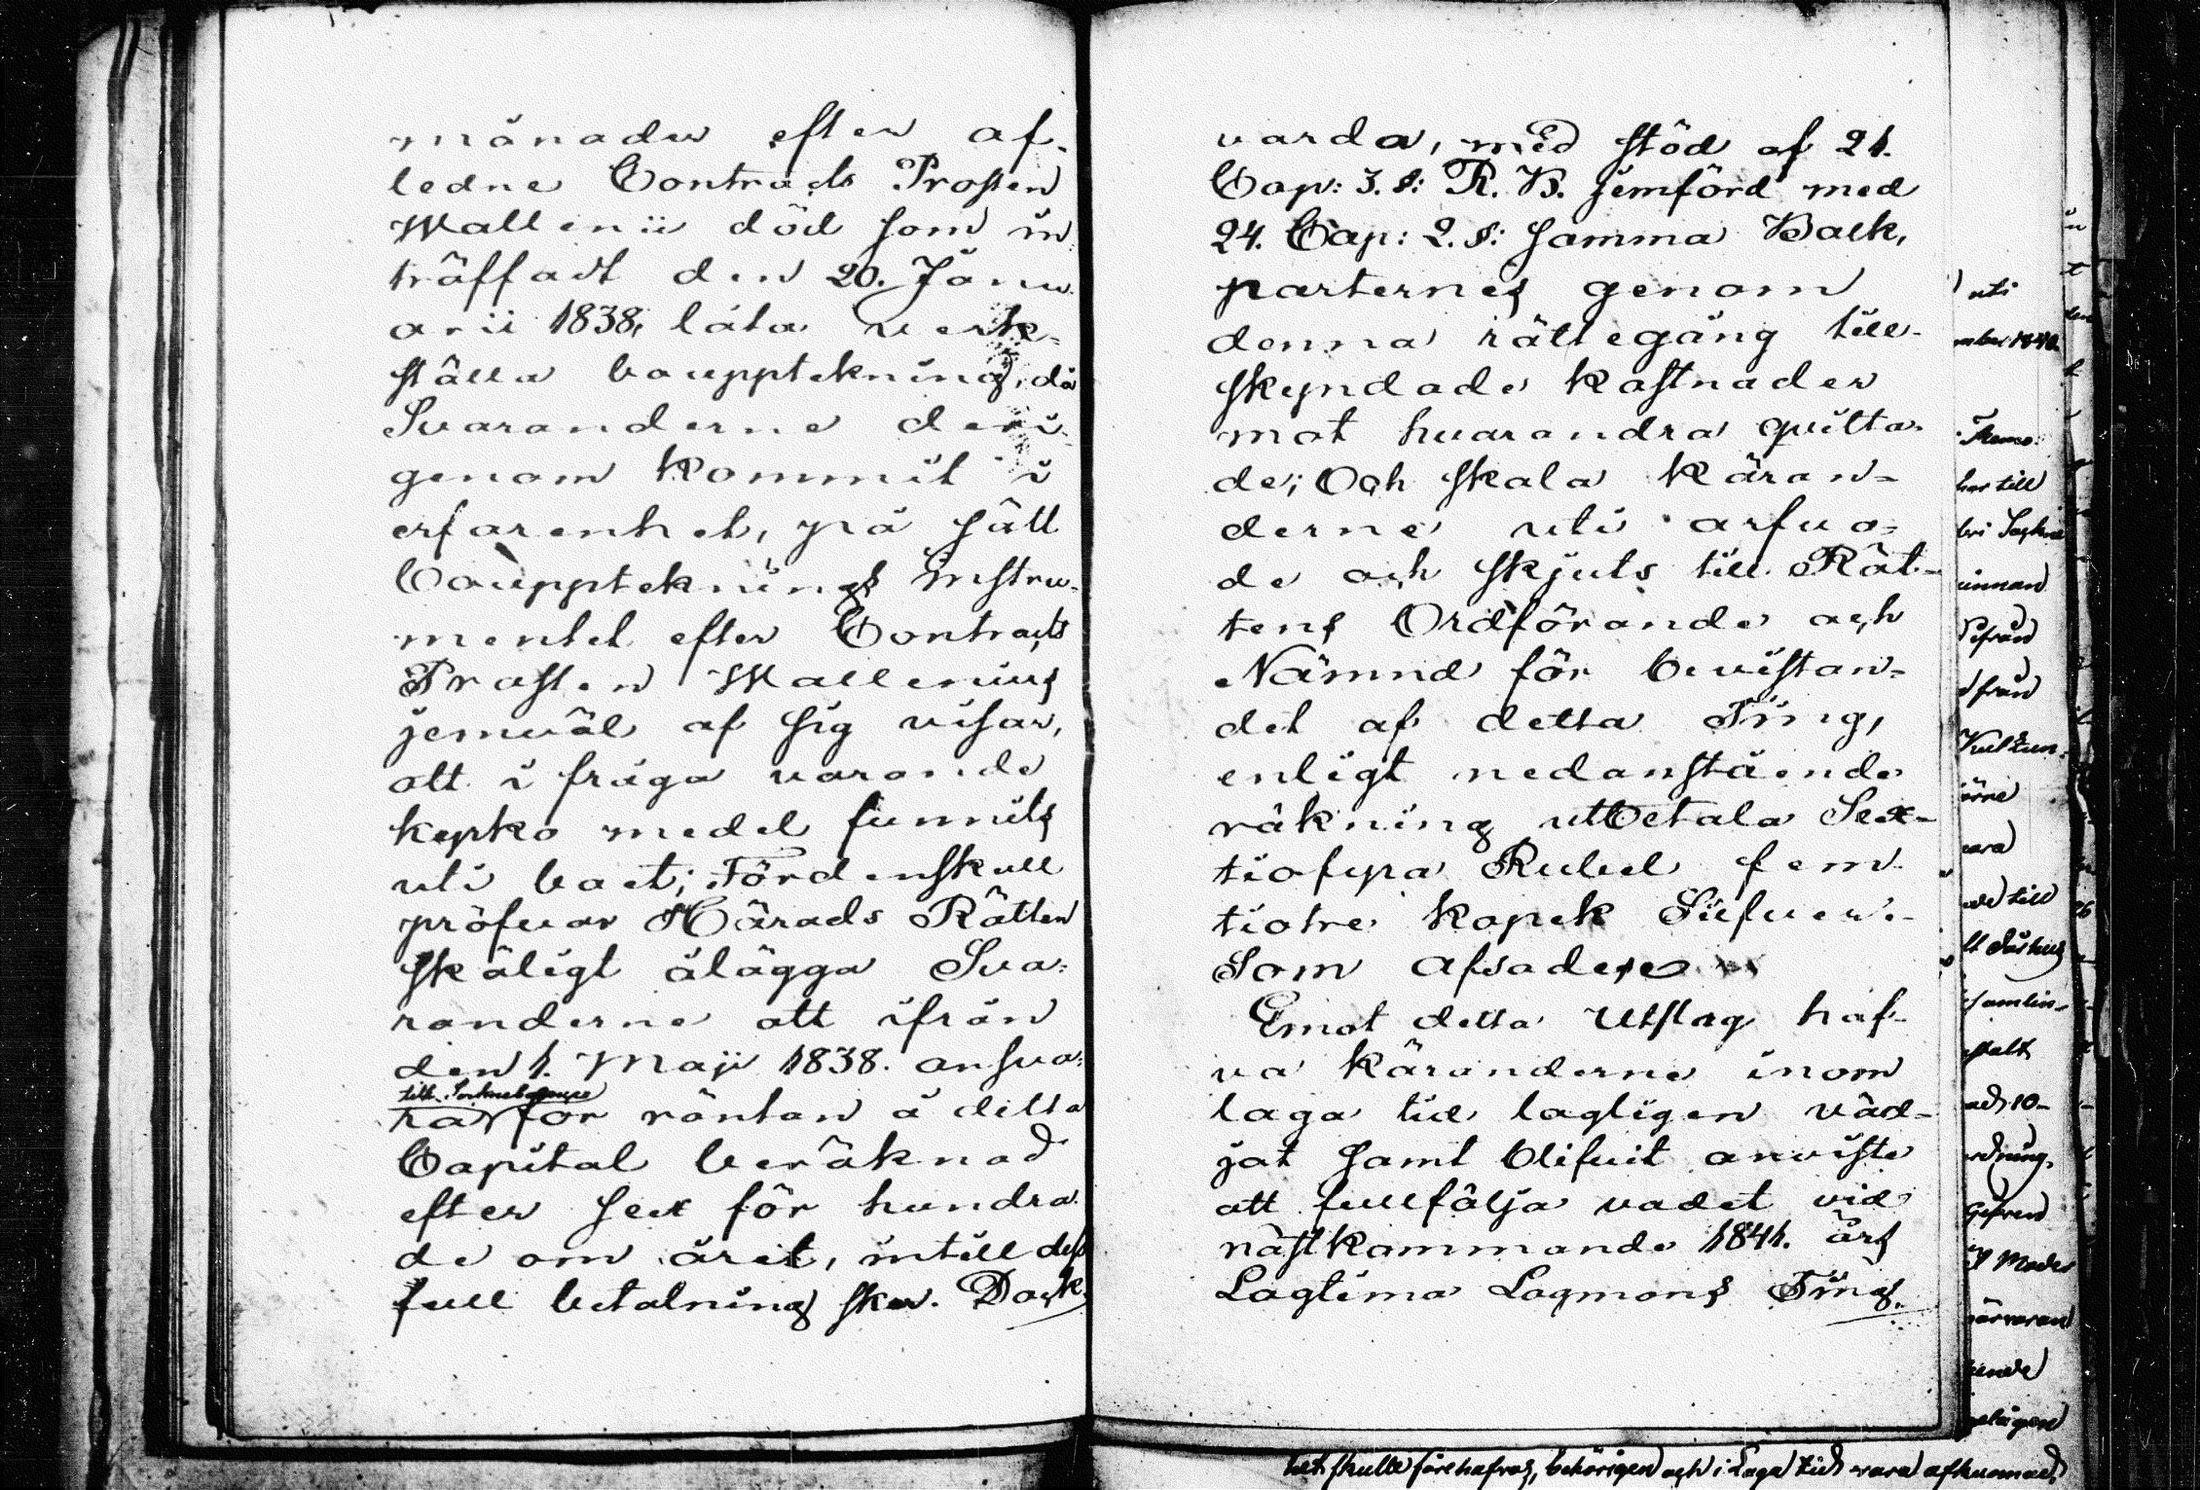 månader efter af-
ledne Contracts Prosten
Wallenii död som in
träffadt den 20. Janu
arii 1838, låta verk-
ställa bouppteckning, då
Svaranderne deri-
genom kommit i
erfarenhet, på sätt
Bouppteknings instru-
mentet efter Contracts
Prosten Wallenius
jemväl af sig visar,
att i fråga varande
kyrko medel funnits
uti boet; Fördenskull
pröfvar Härads Rätten
skäligt ålägga Sva-
randerne att ifrån
den 1. Maji 1838. ansva-
till Sockne
ra för räntan å detta
Capital beräknad
efter sex för hundra
de om året, intill dess
full betalning sker. Dock
varda, med stöd af 21.
Cap: 3. §: R. B. jemförd med
24. Cap: 2. §: samma Balk,
parternes genom
denna rättegång till-
skyndade kostnader
mot hvarandra qvitta-
de; Och skola Käran-
derne uti arfvo-
de och skjuts till Rät-
tens Ordförande och
Nämnd för bevistan-
det af detta Ting,
enligt nedanstående
räkning utbetala Sex-
tiofyra Rubel fem-
tiotre kopek Silfver.-
Som afsades
Emot detta Utslag haf-
va Käranderne inom
laga tid lagligen väd-
jat samt blifvit anviste
att fullfölja vadet vid
nästkommande 1841. års
Lagtima Lagmans Ting.
uti
har till
innan
från
vara
till
samlin-
10-
ordning,
närvaran
skulle förehafvas, behörigen och i Laga tid vara afkunnad,